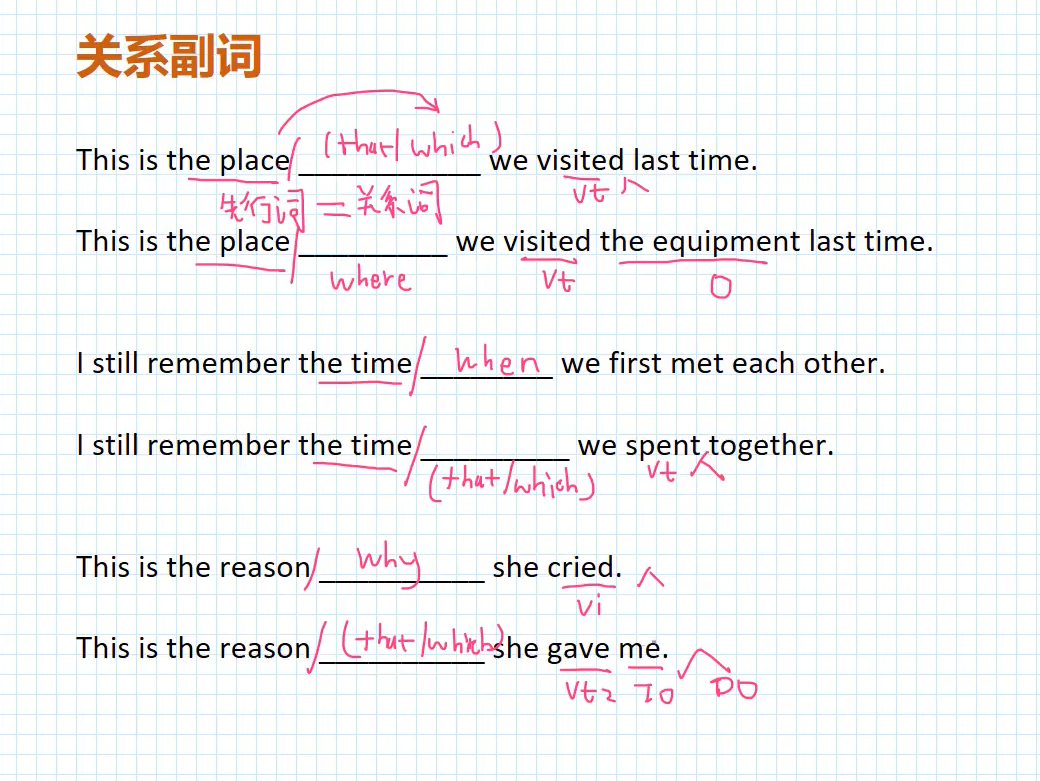 关系副词
(that/which)
This is the place/___________ we visited last time.
先行词 = 关系词 vt
This is the place/_________ we visited the equipment last time.
where vt O
I still remember the time/ when we first met each other.
I still remember the time/_________ we spent together.
(that/which) vt
This is the reason/ why she cried.
vi
This is the reason/ (that/which) she gave me.
vt2 IO DO